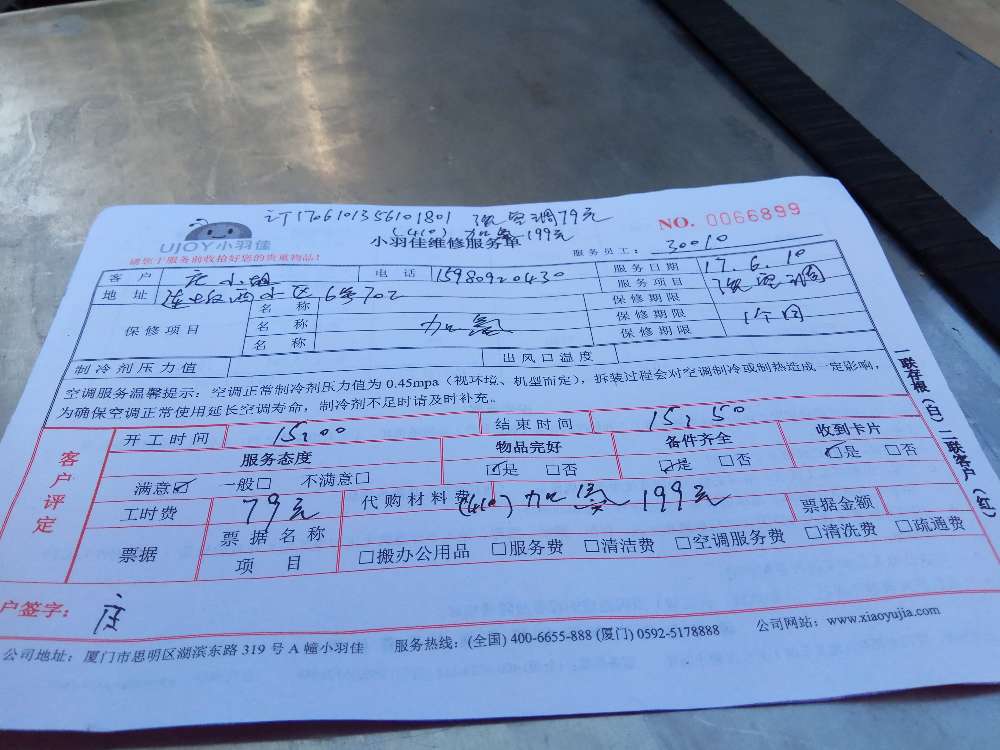 订1706101356101801 派空调79元
(410) 加氟 199元
NO. 0066899
UJOY小羽佳
小羽佳维修服务单
服务员工: 30010
请您于服务前收拾好您的贵重物品!
客户 庄小姐 电话 15980920430 服务日期 17.6.10
地址 莲坂西小区6号702 服务项目
保修项目 名称 加氟 保修期限 1个月
名称 保修期限
名称 保修期限
制冷剂压力值 出风口温度
空调服务温馨提示: 空调正常制冷剂压力值为 0.45mpa (视环境、机型而定), 拆装过程会对空调制冷或制热造成一定影响,
为确保空调正常使用延长空调寿命, 制冷剂不足时请及时补充。
客户评定
开工时间 15:00 结束时间 15:50
服务态度 物品完好 备件齐全 收到卡片
满意☑ 一般□ 不满意□ ☑是 □否 ☑是 □否 ☑是 □否
工时费 79元 代购材料费 (410) 加氟 199元 票据金额
票据 票据名称
项目 □搬办公用品 □服务费 □清洁费 □空调服务费 □清洗费 □疏通费
户签字: 庄
公司地址: 厦门市思明区湖滨东路 319 号 A 幢小羽佳 服务热线: (全国) 400-6655-888 (厦门) 0592-5178888 公司网站: www.xiaoyujia.com
一联存根(白) 二联客户(红)